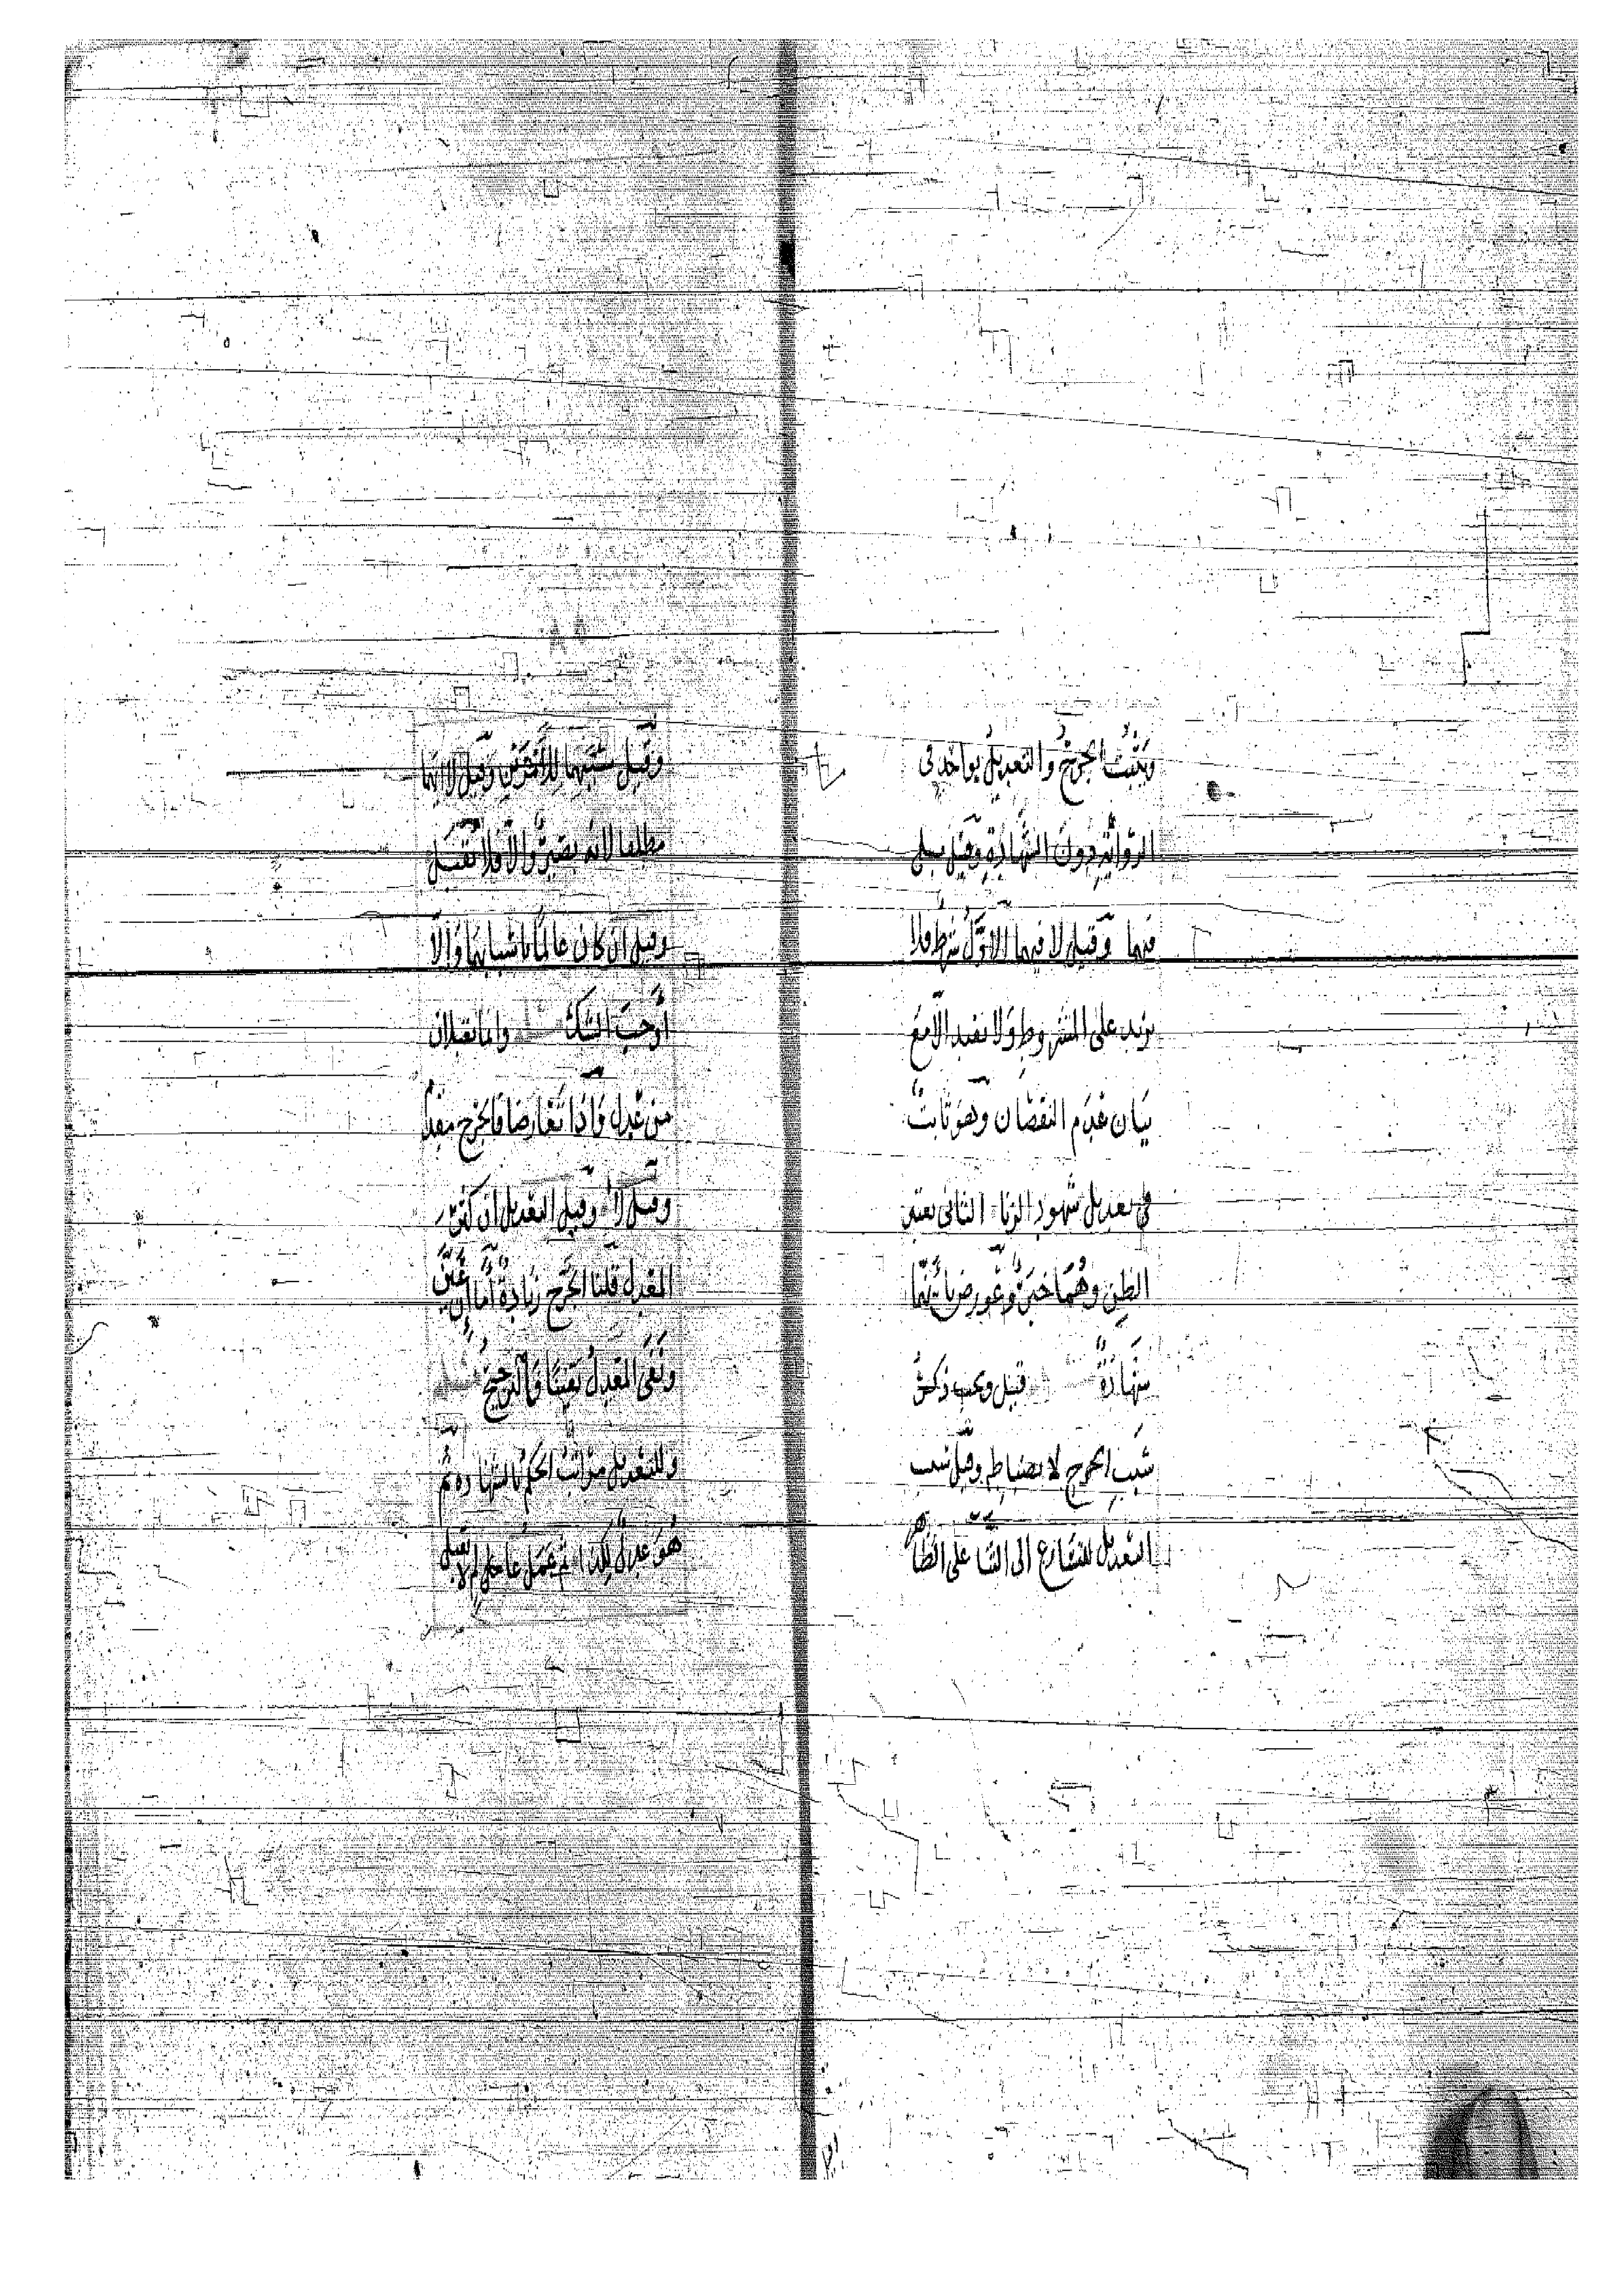 وَيَثْبُتُ الجرحُ والتعديلُ بواحدٍ في
الرواية دون الشهادةِ وقيل بهما
فيهما وقيل لا فيهما الأوّلُ شرطٌ فلا
يزيد على المشروطِ ولا نفيد الا مع
بيان عدم النقصان وهو ثابتٌ
في تعديل شهود الزنا الثاني يفيد
الظن وهُمَا خبرٌ وعورض بأنّهما
شهادةٌ قيل ويجب ذكرُ
سَبَبِ الجرح لا نضباطِهِ وقيل سبب
التعديل للتسارع الى الثنا على الظاهر
وقيل سَبَبَيهما للأخيرَين وقيل لا ايهما
مطلقا لانه بصيرٌ والّا فلا تُقبَل
وقيل ان كان عالمًا باسبابهما والّا
أوجبَ الشكّ وانما يقبلان
من عَدل واذَا تعارضا فالجرح مقدم
وقيل لا وقيل التعديل ان كثر
المعدل قلنا الجرح زيادةٌ أمّا إن عَيَّن
ونَفَى المعَدلُ يقينًا فالترجيحُ
وللتعديل مراتبُ الحكم بالشهادة ثم
هُوَ عدلٌ لكذا ثم عمل عالم لا يقبل